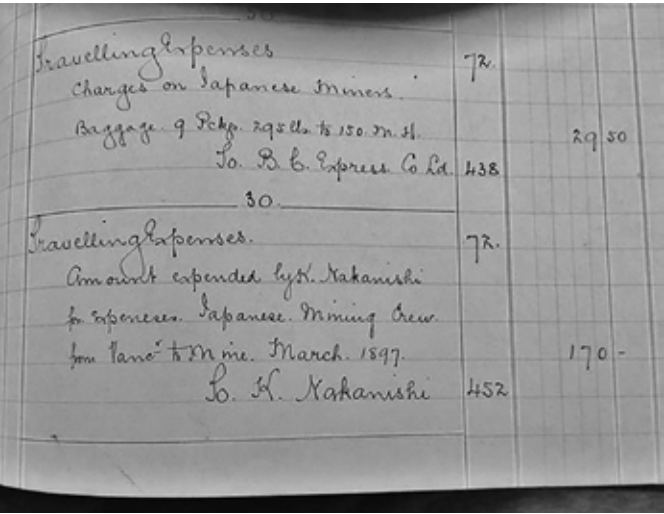 30
Travelling Expenses 72.
Charges on Japanese Miners.
Baggage. 9 Pckgs. 295 lbs to 150. M. H. 29 50
To. B. C. Express. Co Ld. 438
30.
Travelling Expenses. 72.
Amount expended by K. Nakanishi
for expeneses. Japanese. Mining Crew.
from Vanc.r to Mine. March. 1897. 170 -
To. K. Nakanishi 452